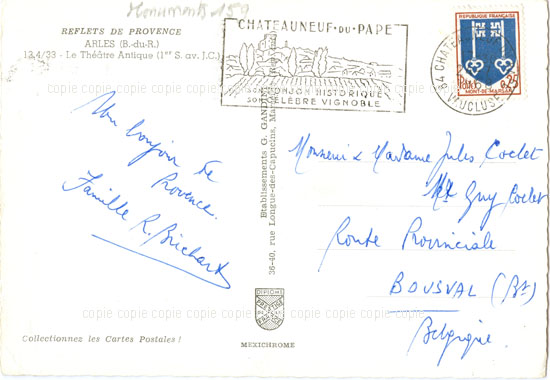 Monuments 159
REFLETS DE PROVENCE
ARLES (B.-du-R.)
13.4/33 - Le Théâtre Antique (1er S. av. J.C.)
CHATEAUNEUF-DU-PAPE
SON DONJON HISTORIQUE
SON CÉLÈBRE VIGNOBLE
84 CHATEAU
VAUCLUSE
REPUBLIQUE FRANÇAISE
0,25
MONT-DE-MARSAN
Un bonjour de
Provence.
Famille R. Brichart
Etablissements G. GANDINI
36-40, rue Longue-des-Capucins, Marseille
Monsieur & Madame Jules Coclet
Mr Guy Coclet
Route Provinciale
BOUSVAL (Bt)
Belgique
DIPLOME
Collectionnez les Cartes Postales !
MEXICHROME
copie copie copie copie copie copie copie copie
copie copie copie copie copie copie copie copie